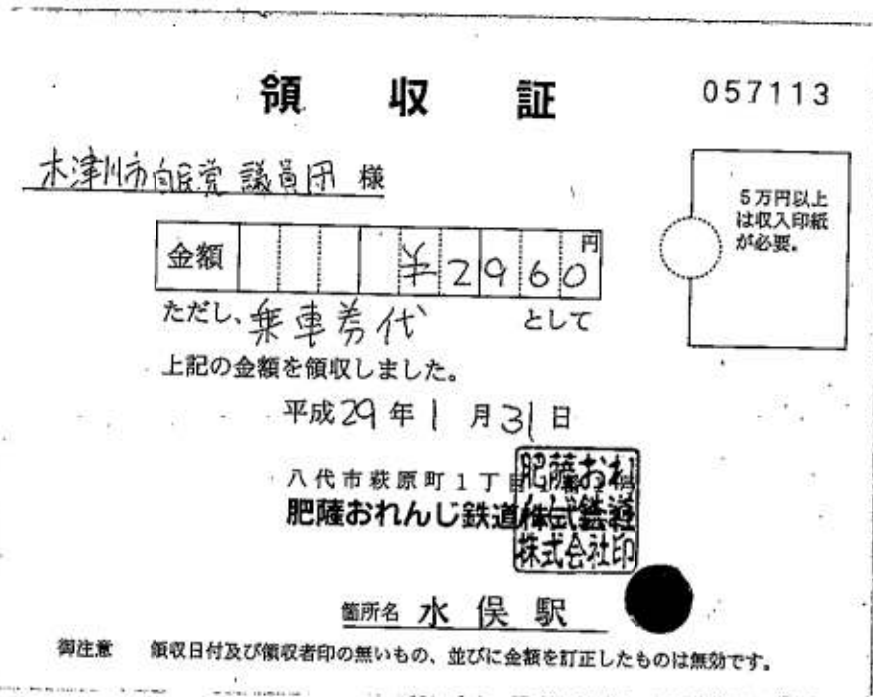 領収証 057113
木津川市自民党 議員団 様
5万円以上
は収入印紙
が必要。
金額 ¥2960円
ただし、乗車券代 として
上記の金額を領収しました。
平成29年1月31日
八代市萩原町1丁目
肥薩おれんじ鉄道株式会社
肥薩おれ
んじ鉄道
株式会社印
箇所名 水俣駅
御注意 領収日付及び領収者印の無いもの、並びに金額を訂正したものは無効です。